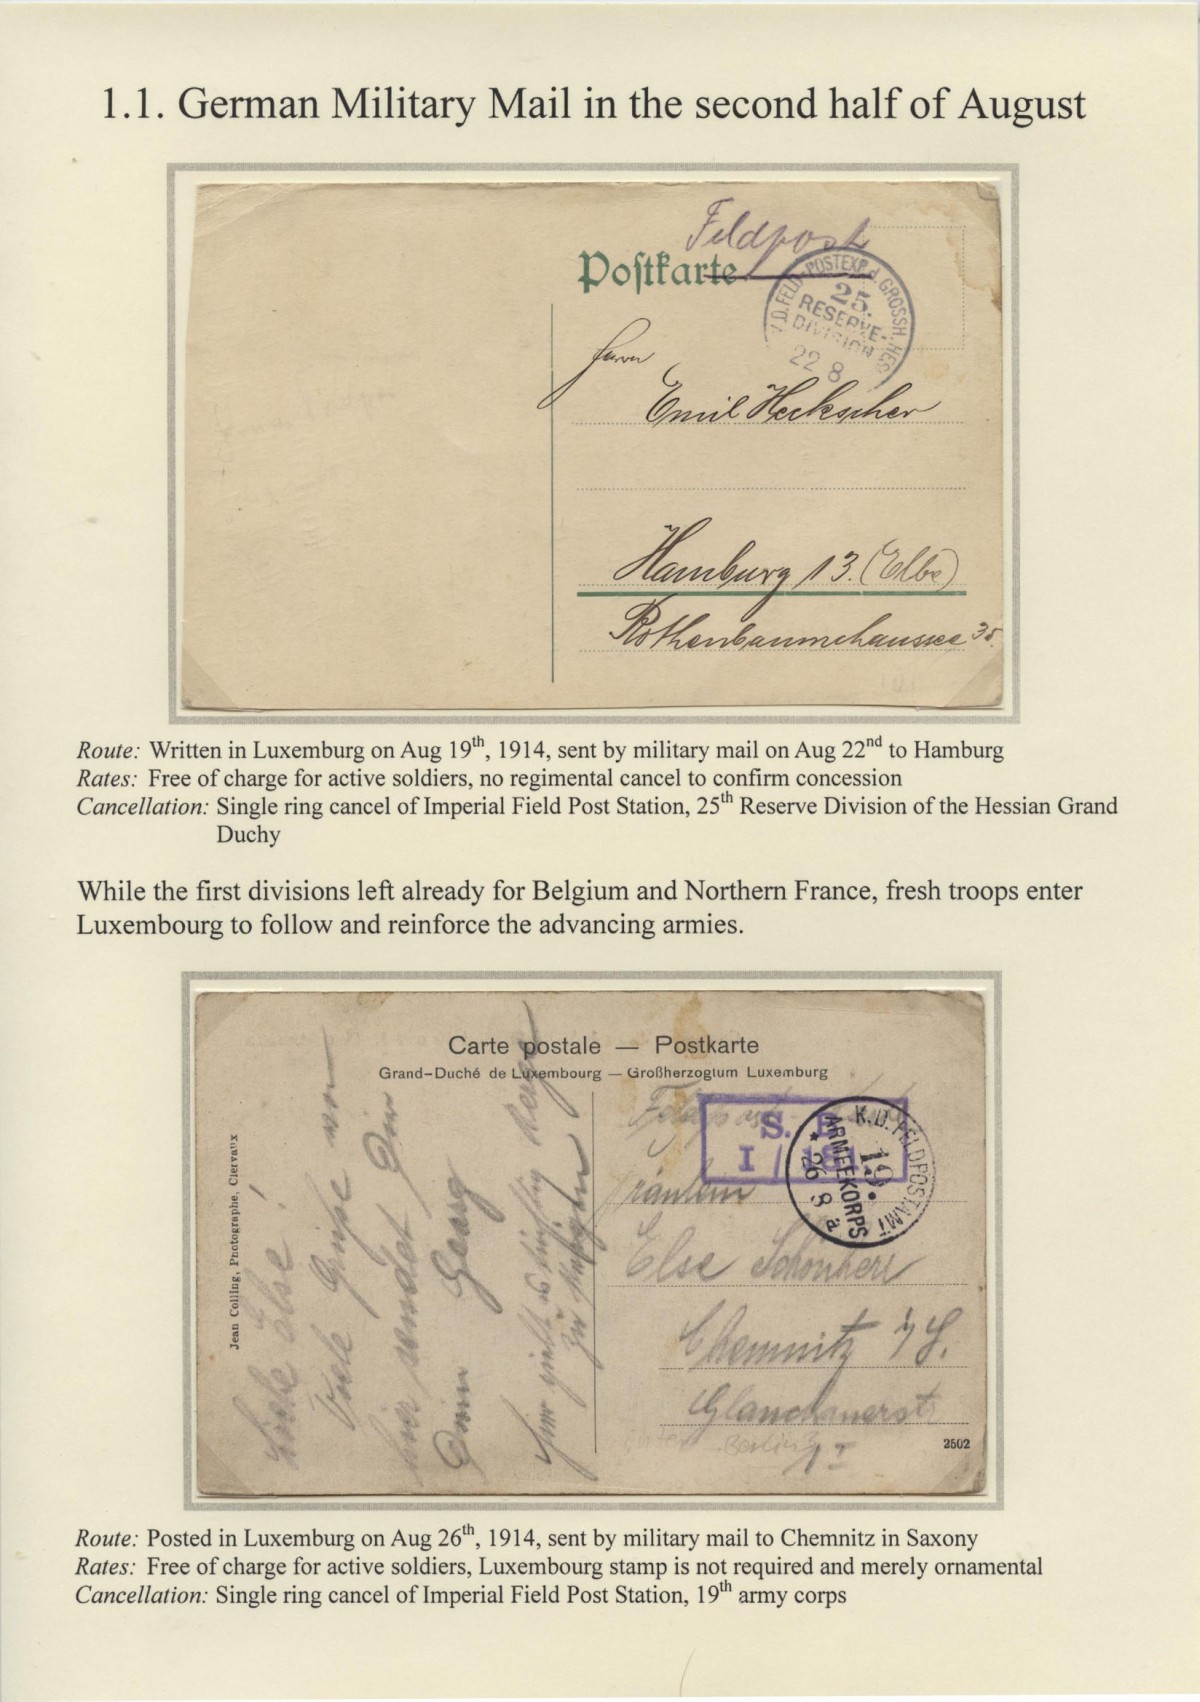 1.1. German Military Mail in the second half of August
Feldpost
Postkarte
K.D. FELD-POSTEXP. d. GROSSH. HES
25.
RESERVE-
DIVISION
22 8
Herrn
Emil Heckscher
Hamburg 13. (Elbe)
Rothenbaumchaussee
Route: Written in Luxemburg on Aug 19th, 1914, sent by military mail on Aug 22nd to Hamburg
Rates: Free of charge for active soldiers, no regimental cancel to confirm concession
Cancellation: Single ring cancel of Imperial Field Post Station, 25th Reserve Division of the Hessian Grand
Duchy
While the first divisions left already for Belgium and Northern France, fresh troops enter
Luxembourg to follow and reinforce the advancing armies.
Carte postale — Postkarte
Grand-Duché de Luxembourg — Großherzogtum Luxemburg
Jean Colling, Photographe, Clervaux
Liebe Else!
Viele Grüße von
hier sendet Dir
Dein Georg
Hier
zu
Feldpost
S. B.
I /
K.D. FELDPOSTAMT
19.
ARMEEKORPS
* 26 8 a
Fräulein
Else Schönherr
Chemnitz i/S.
Glauchauerst
2502
Route: Posted in Luxemburg on Aug 26th, 1914, sent by military mail to Chemnitz in Saxony
Rates: Free of charge for active soldiers, Luxembourg stamp is not required and merely ornamental
Cancellation: Single ring cancel of Imperial Field Post Station, 19th army corps